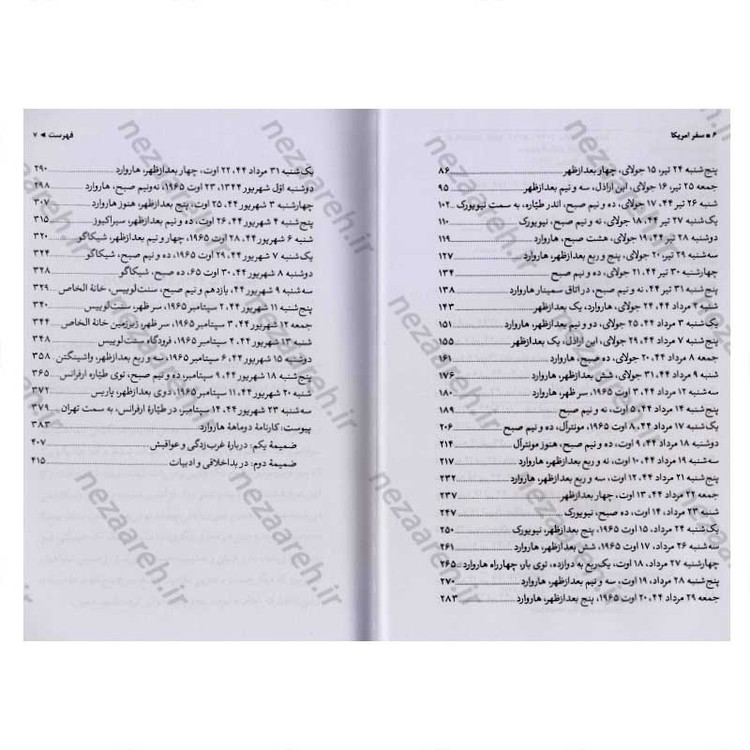 ۶ ■ سفر امریکا
پنج‌شنبه ۲۴ تیر، ۱۵ جولای، چهار بعدازظهر ۸۶
جمعه ۲۵ تیر، ۱۶ جولای، این آراذل، سه و نیم بعدازظهر ۹۵
شنبه ۲۶ تیر ۴۴، ۱۷ جولای، ده و نیم صبح، اندر طیّاره، به سمت نیویورک ۱۰۲
یک‌شنبه ۲۷ تیر ۴۴، ۱۸ جولای، نه و نیم صبح، نیویورک ۱۱۰
دوشنبه ۲۸ تیر ۴۴، ۱۹ جولای، هشت صبح، هاروارد ۱۱۹
سه‌شنبه ۲۹ تیر، ۲۰ جولای، پنج و ربع بعدازظهر، هاروارد ۱۲۷
چهارشنبه ۳۰ تیر ۴۴، ۲۱ جولای، ده و نیم صبح ۱۳۴
پنج‌شنبه ۳۱ تیر ۴۴، نه و نیم صبح، در اتاق سمینار هاروارد ۱۳۸
شنبه ۲ مرداد ۴۴، ۲۴ جولای، هاروارد، یک بعدازظهر ۱۴۳
یک‌شنبه ۳ مرداد ۴۴، ۲۵ جولای، دو و نیم بعدازظهر، هاروارد ۱۵۱
پنج‌شنبه ۷ مرداد ۴۴، ۲۹ جولای، این آراذل، یک بعدازظهر ۱۵۵
جمعه ۸ مرداد ۴۴، ۲۰ جولای، ده صبح، هاروارد ۱۶۱
شنبه ۹ مرداد ۴۴، ۳۱ جولای، شش بعدازظهر، هاروارد ۱۷۶
سه‌شنبه ۱۲ مرداد ۴۴، ۳ اوت ۱۹۶۵، سر ظهر، هاروارد ۱۸۰
پنج‌شنبه ۱۴ مرداد ۴۴، ۵ اوت، نه و نیم صبح ۱۸۹
یک‌شنبه ۱۷ مرداد ۴۴، ۸ اوت ۱۹۶۵، مونترآل، ده و نیم صبح ۲۰۶
دوشنبه ۱۸ مرداد ۴۴، ۹ اوت، ده و نیم صبح، هنوز مونترآل ۲۱۴
سه‌شنبه ۱۹ مرداد ۴۴، ۱۰ اوت، نه و ربع بعدازظهر، هاروارد ۲۱۷
پنج‌شنبه ۲۱ مرداد ۴۴، ۱۲ اوت، سه و ربع بعدازظهر، هاروارد ۲۳۲
جمعه ۲۲ مرداد ۴۴، ۱۳ اوت، چهار بعدازظهر ۲۳۷
شنبه ۲۳ مرداد، ۱۴ اوت، ده صبح، نیویورک ۲۴۷
یک‌شنبه ۲۴ مرداد، ۱۵ اوت ۱۹۶۵، پنج بعدازظهر، نیویورک ۲۵۰
سه‌شنبه ۲۶ مرداد، ۱۷ اوت ۱۹۶۵، شش بعدازظهر، هاروارد ۲۶۱
چهارشنبه ۲۷ مرداد، ۱۸ اوت، یک‌ربع به دوازده، توی بار، چهارراه هاروارد ۲۶۵
پنج‌شنبه ۲۸ مرداد، ۱۹ اوت، سه و نیم بعدازظهر، هاروارد ۲۷۰
جمعه ۲۹ مرداد ۴۴، ۲۰ اوت ۱۹۶۵، پنج بعدازظهر، هاروارد ۲۸۳
فهرست ◄ ۷
یک‌شنبه ۳۱ مرداد ۴۴، ۲۲ اوت، چهار بعدازظهر، هاروارد ۲۹۰
دوشنبه اوّل شهریور ۱۳۴۴، ۲۳ اوت ۱۹۶۵، نه‌ونیم صبح، هاروارد ۲۹۸
چهارشنبه ۳ شهریور ۴۴، ۲۵ اوت، پنج بعدازظهر، هنوز هاروارد ۳۰۷
پنج‌شنبه ۴ شهریور ۴۴، ۲۶ اوت، ده و نیم بعدازظهر، سیراکیوز ۳۱۵
شنبه ۶ شهریور ۴۴، ۲۸ اوت ۱۹۶۵، چهار و نیم بعدازظهر، شیکاگو ۳۲۰
یک‌شنبه ۷ شهریور ۴۴، ۲۹ اوت ۱۹۶۵، ده و نیم صبح، شیکاگو ۳۲۴
دوشنبه ۸ شهریور ۴۴، ۳۰ اوت ۶۵، ده صبح، شیکاگو ۳۲۸
سه‌شنبه ۹ شهریور ۴۴، یازدهم و نیم صبح، سنت‌لوییس، خانهٔ الخاص ۳۲۹
پنج‌شنبه ۱۱ شهریور ۴۴، ۲ سپتامبر ۱۹۶۵، سر ظهر، سنت‌لوییس ۳۴۰
جمعه ۱۲ شهریور ۴۴، ۳ سپتامبر ۱۹۶۵، سر ظهر، زیرزمین خانهٔ الخاص ۳۴۴
شنبه ۱۳ شهریور ۴۴، ۴ سپتامبر ۱۹۶۵، فرودگاه سنت‌لوییس ۳۴۸
دوشنبه ۱۵ شهریور ۴۴، ۶ سپتامبر ۱۹۶۵، سه و ربع بعدازظهر، واشینگتن ۳۵۸
پنج‌شنبه ۱۸ شهریور ۴۴، ۹ سپتامبر، ده و نیم صبح، توی طیّاره ارفرانس ۳۶۵
شنبه ۲۰ شهریور ۴۴، ۱۱ سپتامبر ۱۹۶۵، دوی بعدازظهر، پاریس ۳۷۲
سه‌شنبه ۲۳ شهریور ۴۴، ۱۴ سپتامبر، در طیّارهٔ ارفرانس، به سمت تهران ۳۷۹
پیوست: کارنامهٔ دوماههٔ هاروارد ۳۸۳
ضمیمهٔ یکم: دربارهٔ غرب‌زدگی و عواقبش ۴۰۷
ضمیمهٔ دوم: در بداخلاقی و ادبیات ۴۱۵
nezaareh.ir
nezaareh.ir
nezaareh.ir
nezaareh.ir
nezaareh.ir
nezaareh.ir